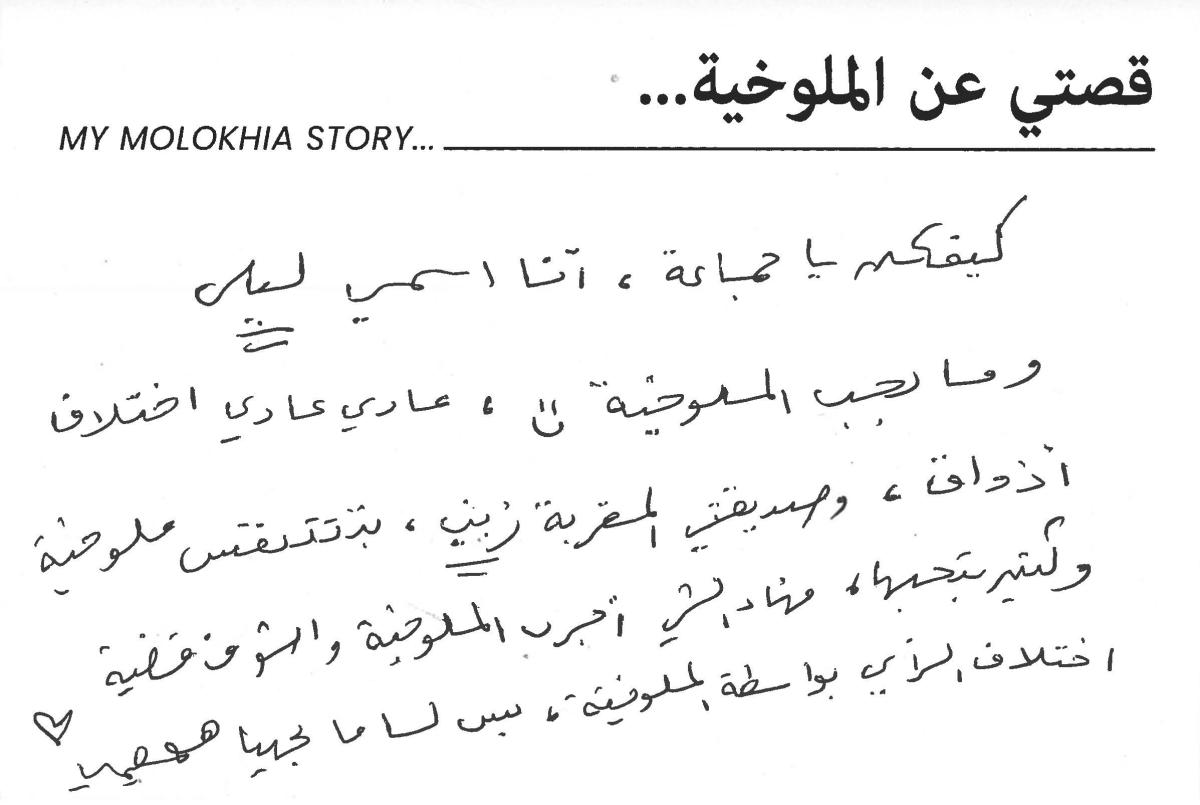 قصتي عن الملوخية...
MY MOLOKHIA STORY...
كيفكن يا جماعة ، أنا اسمي ليلى
وما بحب الملوخية ، عادي عادي اختلاف
أذواق ، وصديقتي المقربة زينب ، بتتنفس ملوخية
وكتير بتحبها ، الشي أجرب الملوخية واشوف قضية
اختلاف الرأي بواسطة الملوخية ، بس لسا ما بحبها ههههههه